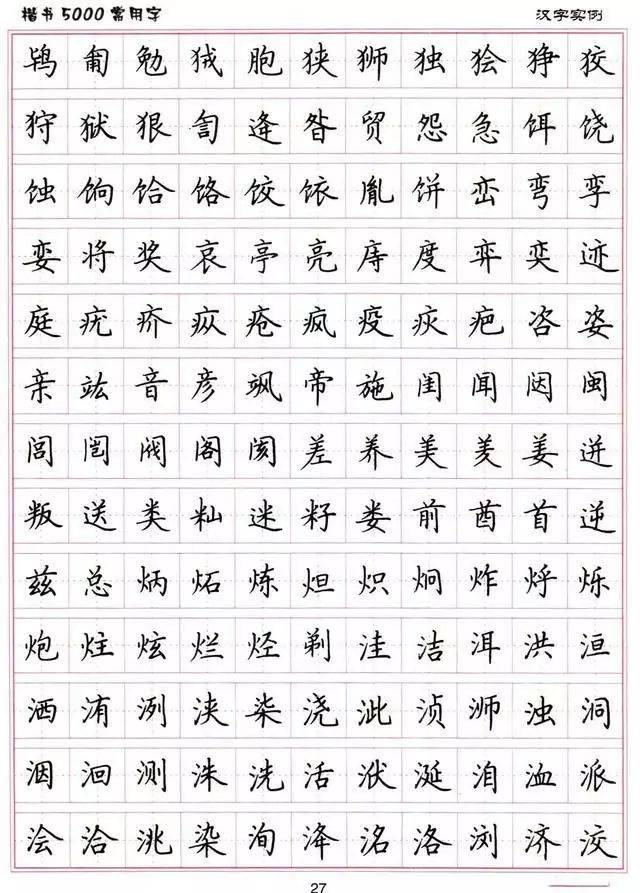 楷书5000常用字 汉字实例
鸨匍勉狨胞狭狮独狯狰狡
狩狱狠訇逄昝贸怨急饵饶
蚀饷饸饹饺饻胤饼峦弯孪
娈将奖哀亭亮庤度弈奕迹
庭疣疥疭疮疯疫疢疤咨姿
亲竑音彦飒帝施闺闻闼闽
闾闿阀阁阂差养美羑姜迸
叛送类籼迷籽娄前酋首逆
兹总炳炻炼炟炽炯炸烀烁
炮炷炫烂烃剃洼洁洱洪洹
洒洧洌浃柒浇泚浈浉浊洞
洇洄测洙洗活洑涎洎洫派
浍洽洮染洵洚洺洛浏济洨
27